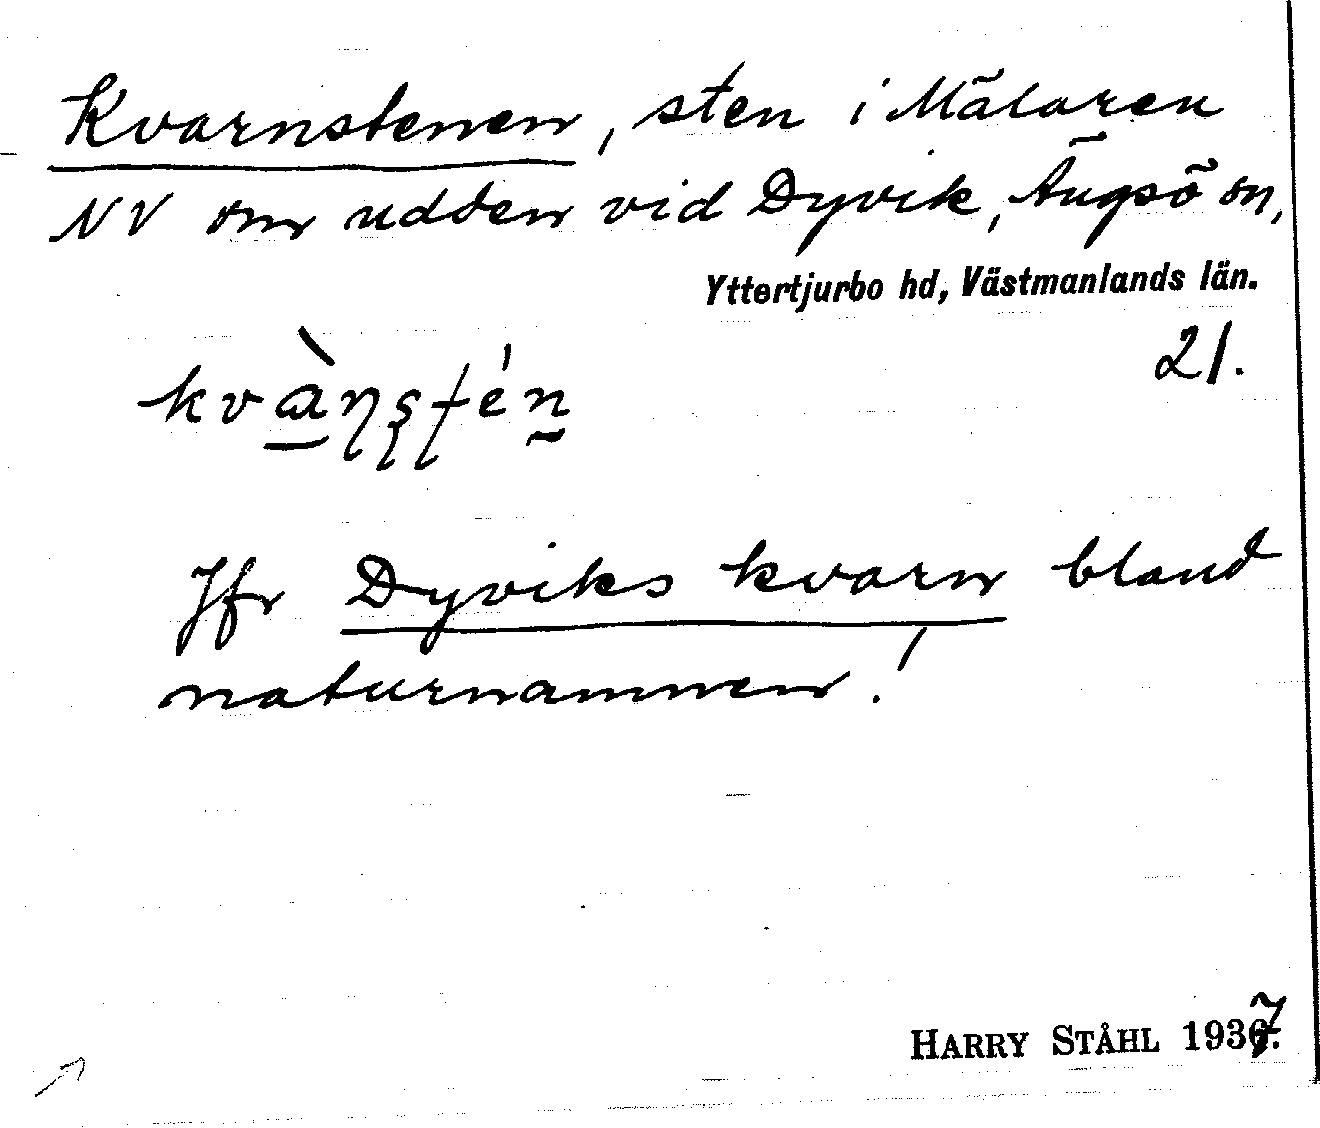 Kvarnstenen, sten i Mälaren
NV om udden vid Dyvik, Ängsö sn,
Yttertjurbo hd, Västmanlands län.
21.
Jfr Dyviks kvarn bland
naturnamnen!
HARRY STÅHL 1937.